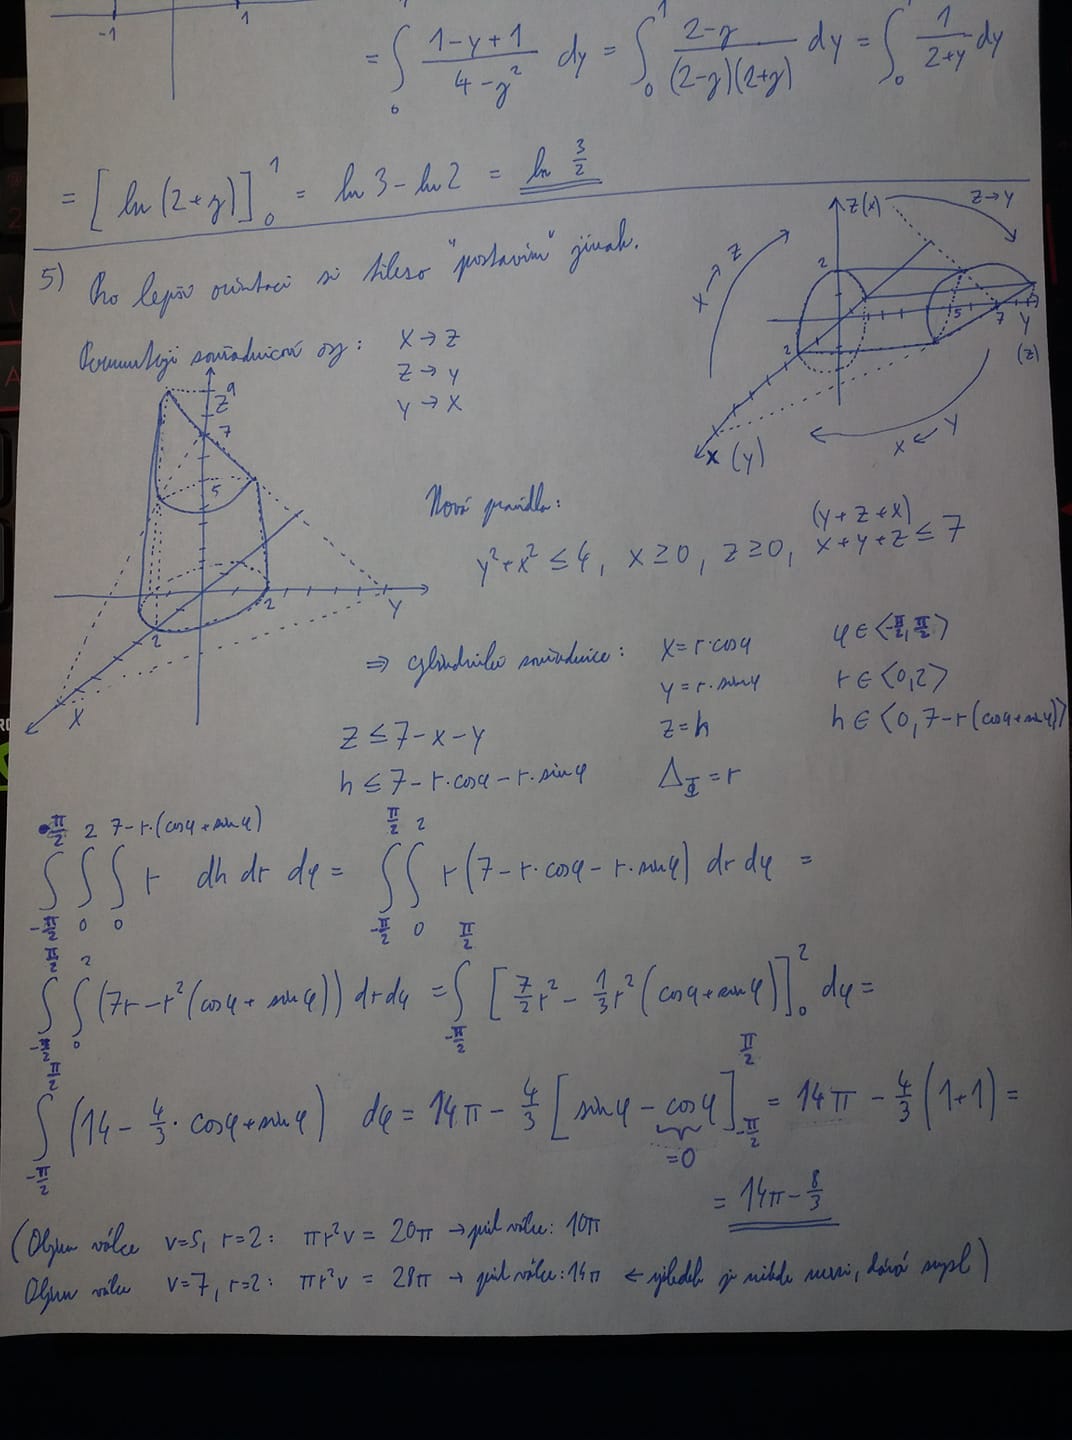 -1 1
= ∫₀¹ (1-y+1)/(4-y²) dy = ∫₀¹ (2-y)/((2-y)(2+y)) dy = ∫₀¹ 1/(2+y) dy
= [ln(2+y)]₀¹ = ln 3 - ln 2 = ln 3/2
5) Pro lepší orientaci si těleso "postavím" jinak.
Permutuji souřadnicové osy: x → z
z → y
y → x
z(x) z→y
x → z
2 2 5 7 y (z)
x (y) x ← y
z 9 7 5 2 2 y x
Nová pravidla:
(y+z+x)
y²+x² ≤ 4, x ≥ 0, z ≥ 0, x+y+z ≤ 7
⇒ cylindrické souřadnice: x = r·cosφ φ ∈ <-π/2, π/2>
y = r·sinφ r ∈ <0,2>
z ≤ 7-x-y z = h h ∈ <0, 7-r(cosφ+sinφ)>
h ≤ 7-r·cosφ-r·sinφ Δ_Φ = r
∫_{-π/2}^{π/2} ∫₀² ∫₀^{7-r·(cosφ+sinφ)} r dh dr dφ = ∫_{-π/2}^{π/2} ∫₀² r(7-r·cosφ-r·sinφ) dr dφ =
∫_{-π/2}^{π/2} ∫₀² (7r-r²(cosφ+sinφ)) dr dφ = ∫_{-π/2}^{π/2} [7/2 r² - 1/3 r² (cosφ+sinφ)]₀² dφ =
∫_{-π/2}^{π/2} (14 - 4/3 · cosφ+sinφ) dφ = 14π - 4/3 [sinφ - cosφ]_{-π/2}^{π/2} = 14π - 4/3 (1+1) =
=0
= 14π - 8/3
(Objem válce v=5, r=2: πr²v = 20π → půl válce: 10π
Objem válce v=7, r=2: πr²v = 28π → půl válce: 14π ← výsledek je někde mezi, dává smysl)